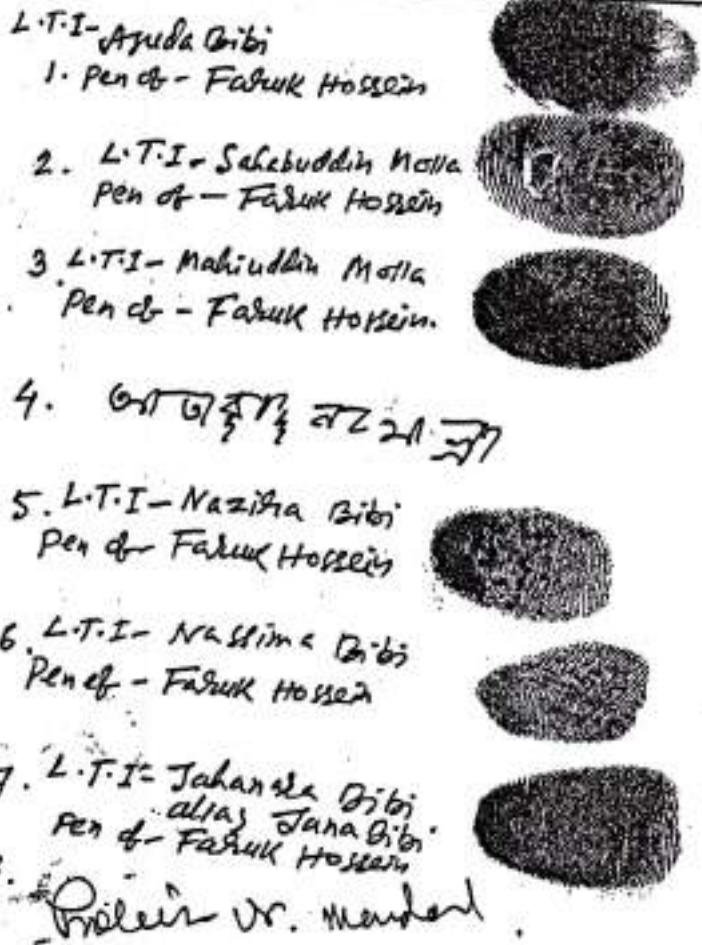 L.T.I- Ajuda Bibi
1. Pen of - Faruk Hossein
2. L.T.I - Sahabuddin Molla
Pen of - Faruk Hossein
3 L.T.I - Mahiuddin Molla
Pen of - Faruk Hossein.
4.
5. L.T.I - Nazira Bibi
Pen of - Faruk Hossein
6. L.T.I - Nassima Bibi
Pen of - Faruk Hossein
7. L.T.I - Jahanara Bibi
alias Jana Bibi
Pen of - Faruk Hossein